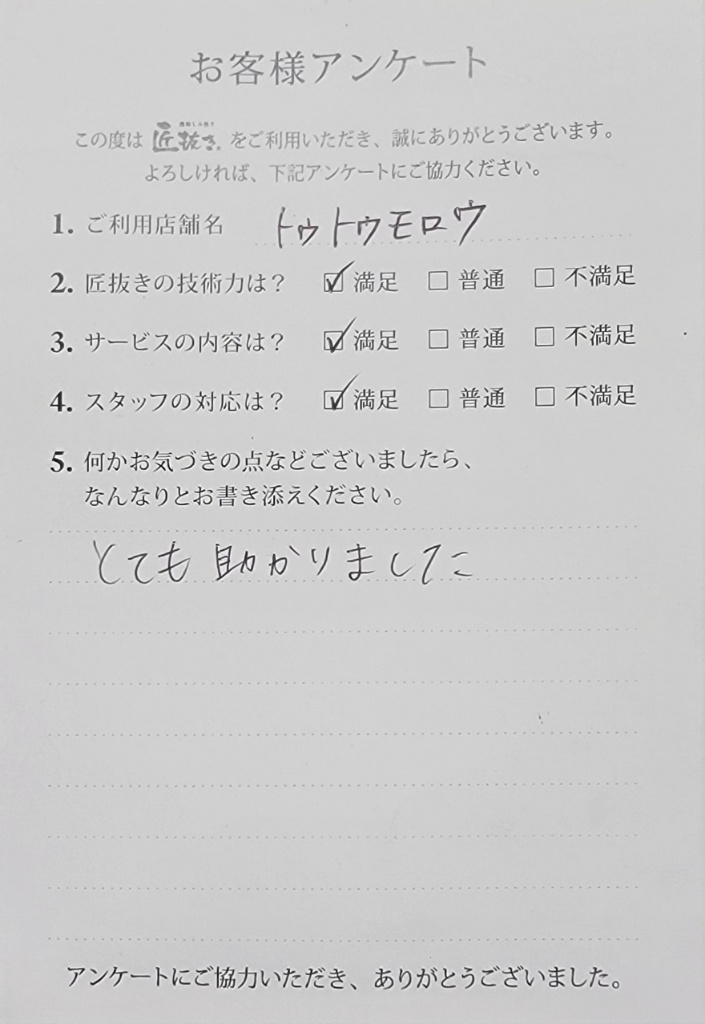 お客様アンケート
この度は 匠抜き をご利用いただき、誠にありがとうございます。
よろしければ、下記アンケートにご協力ください。
1. ご利用店舗名 トゥトゥモロウ
2. 匠抜きの技術力は? ☑ 満足 □ 普通 □ 不満足
3. サービスの内容は? ☑ 満足 □ 普通 □ 不満足
4. スタッフの対応は? ☑ 満足 □ 普通 □ 不満足
5. 何かお気づきの点などございましたら、
なんなりとお書き添えください。
とても助かりました
アンケートにご協力いただき、ありがとうございました。